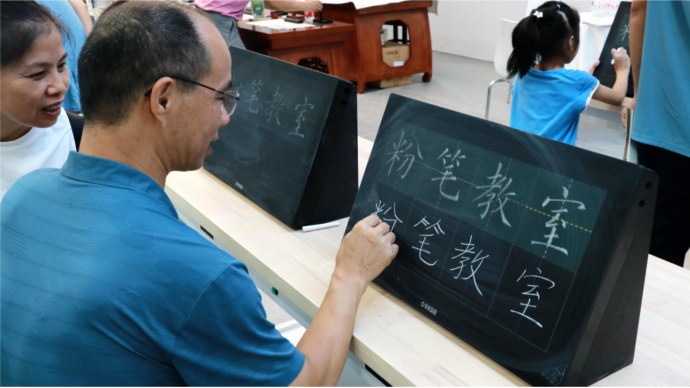 粉笔教室
粉笔教室
粉笔教室